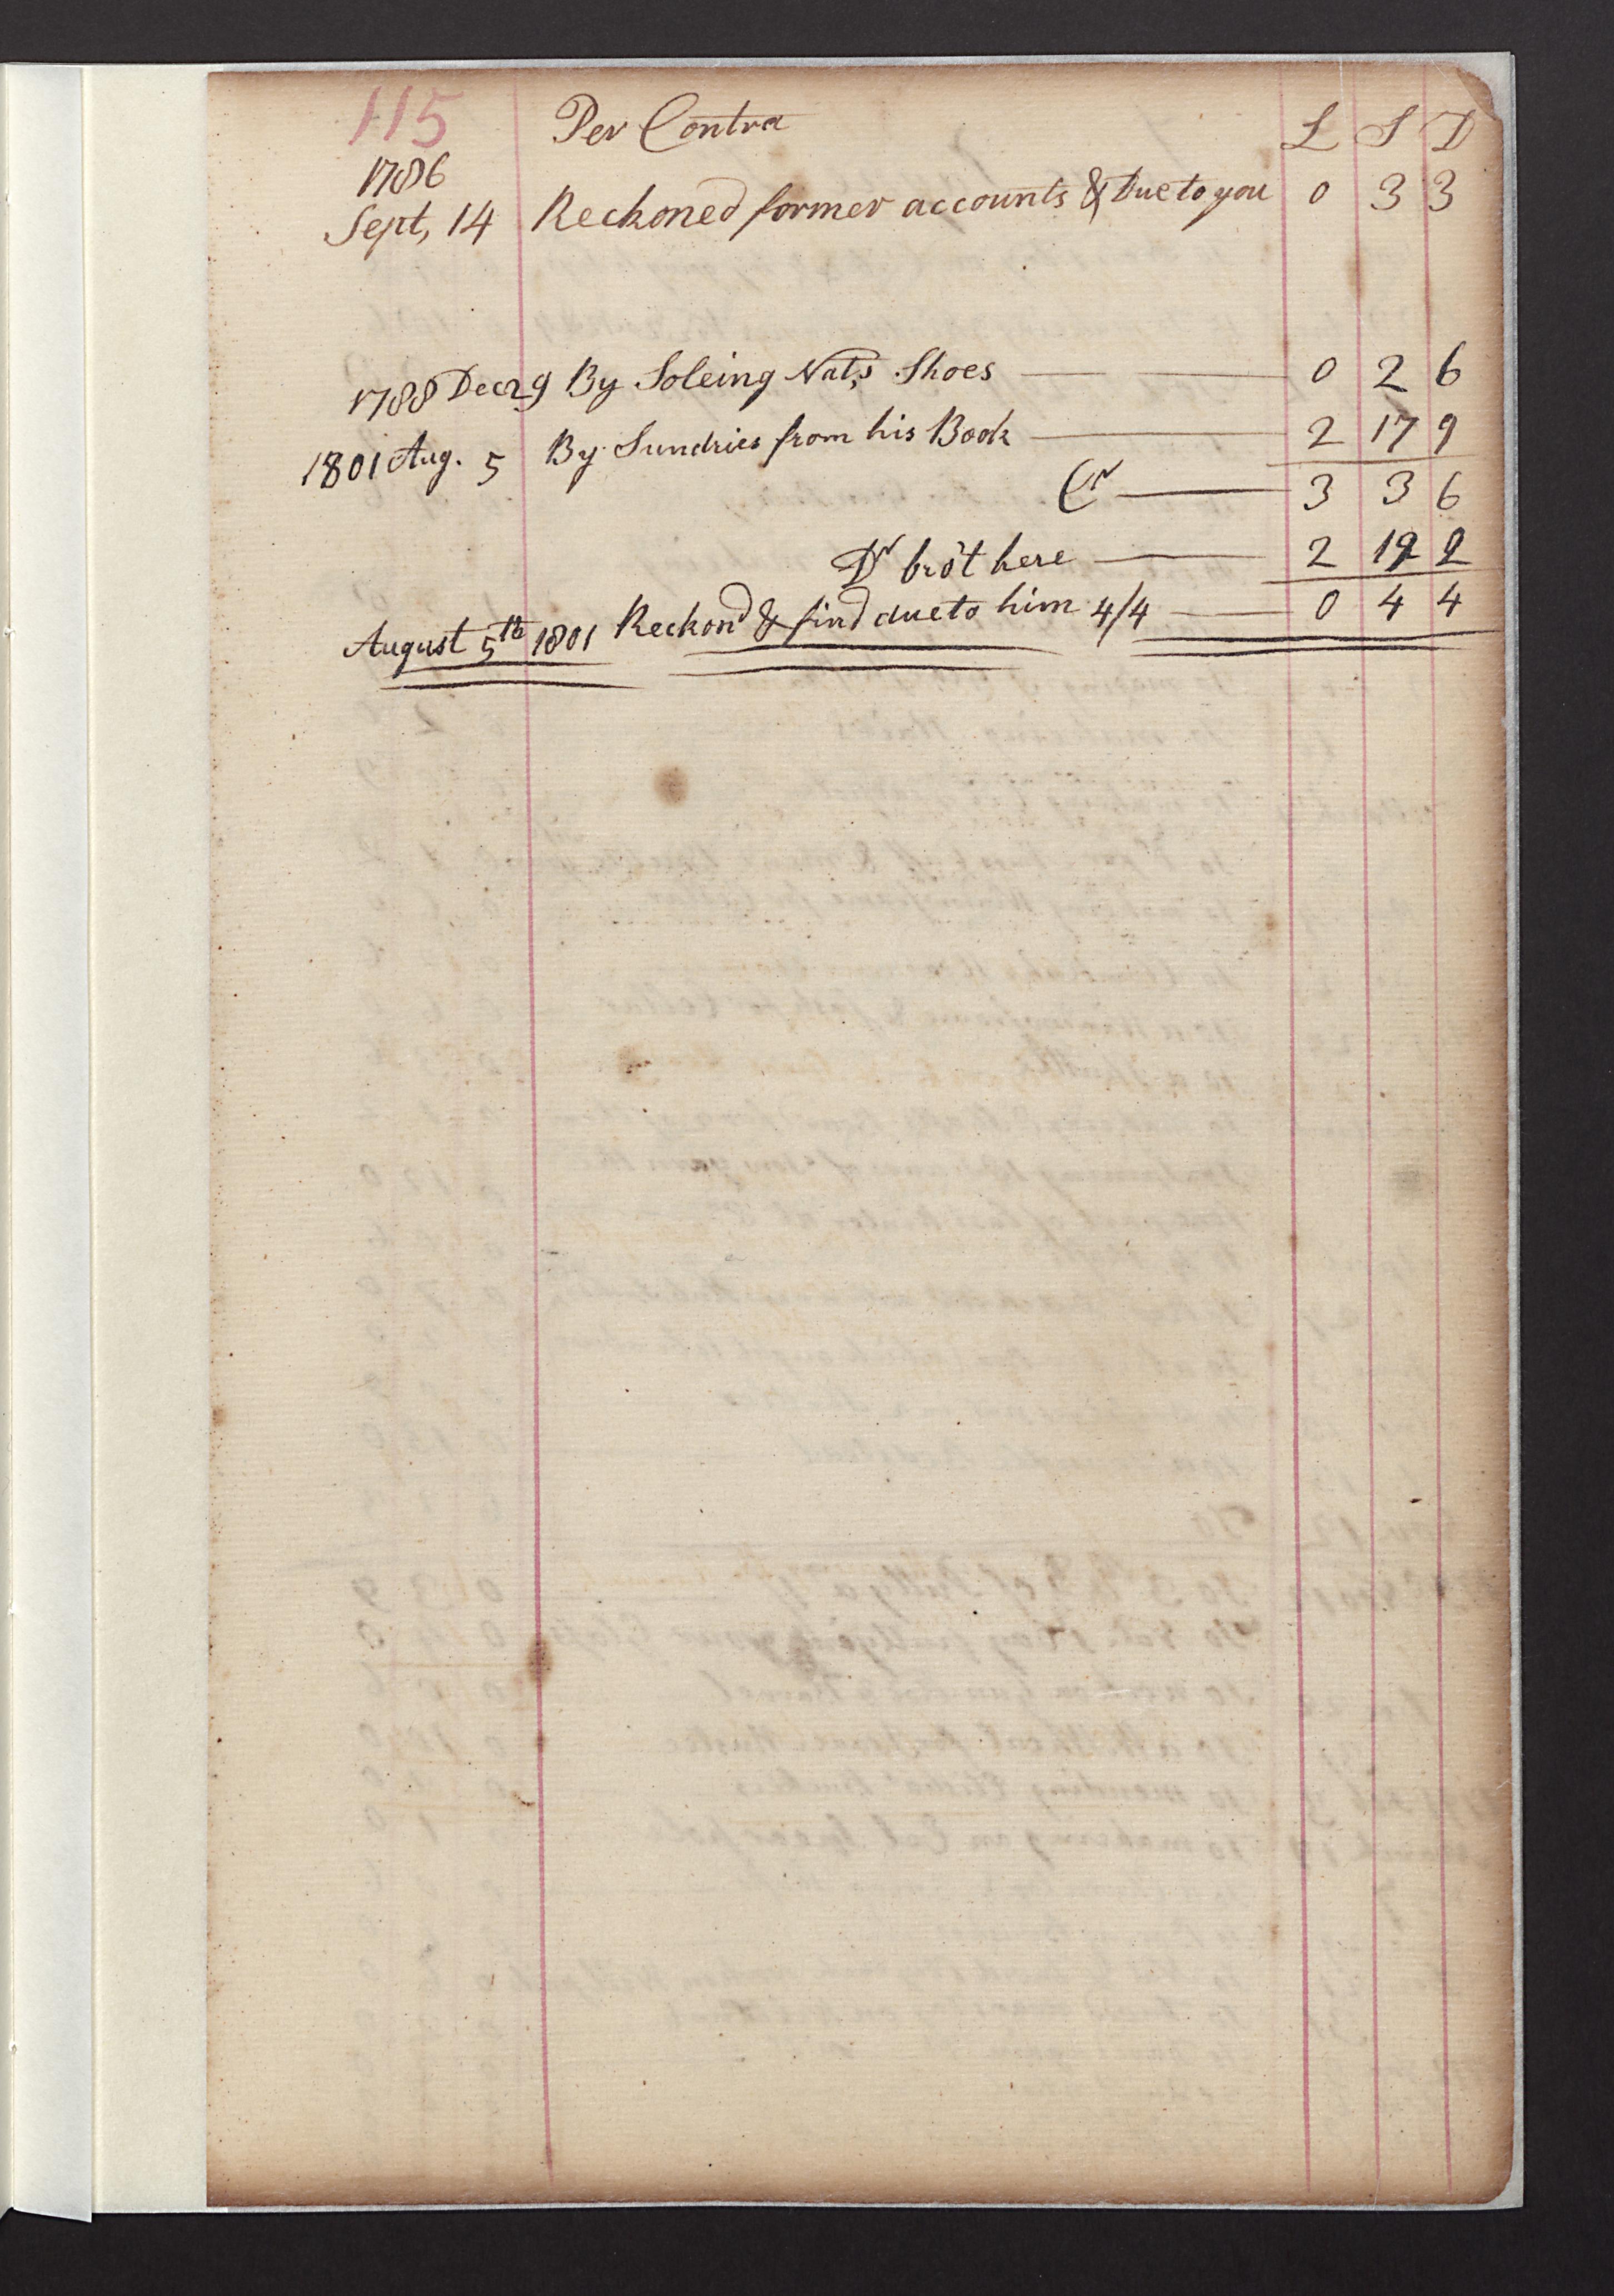 115 Per Contra L S D
1786
Sept, 14 Reckoned former accounts & Due to you 0 3 3
1788 Decr 9 By Soleing Nat,s Shoes 0 2 6
1801 Aug. 5 By Sundries from his Book 2 17 9
Cr 3 3 6
Dr bro't here 2 19 2
August 5th 1801 Reckond & find due to him 4/4 0 4 4